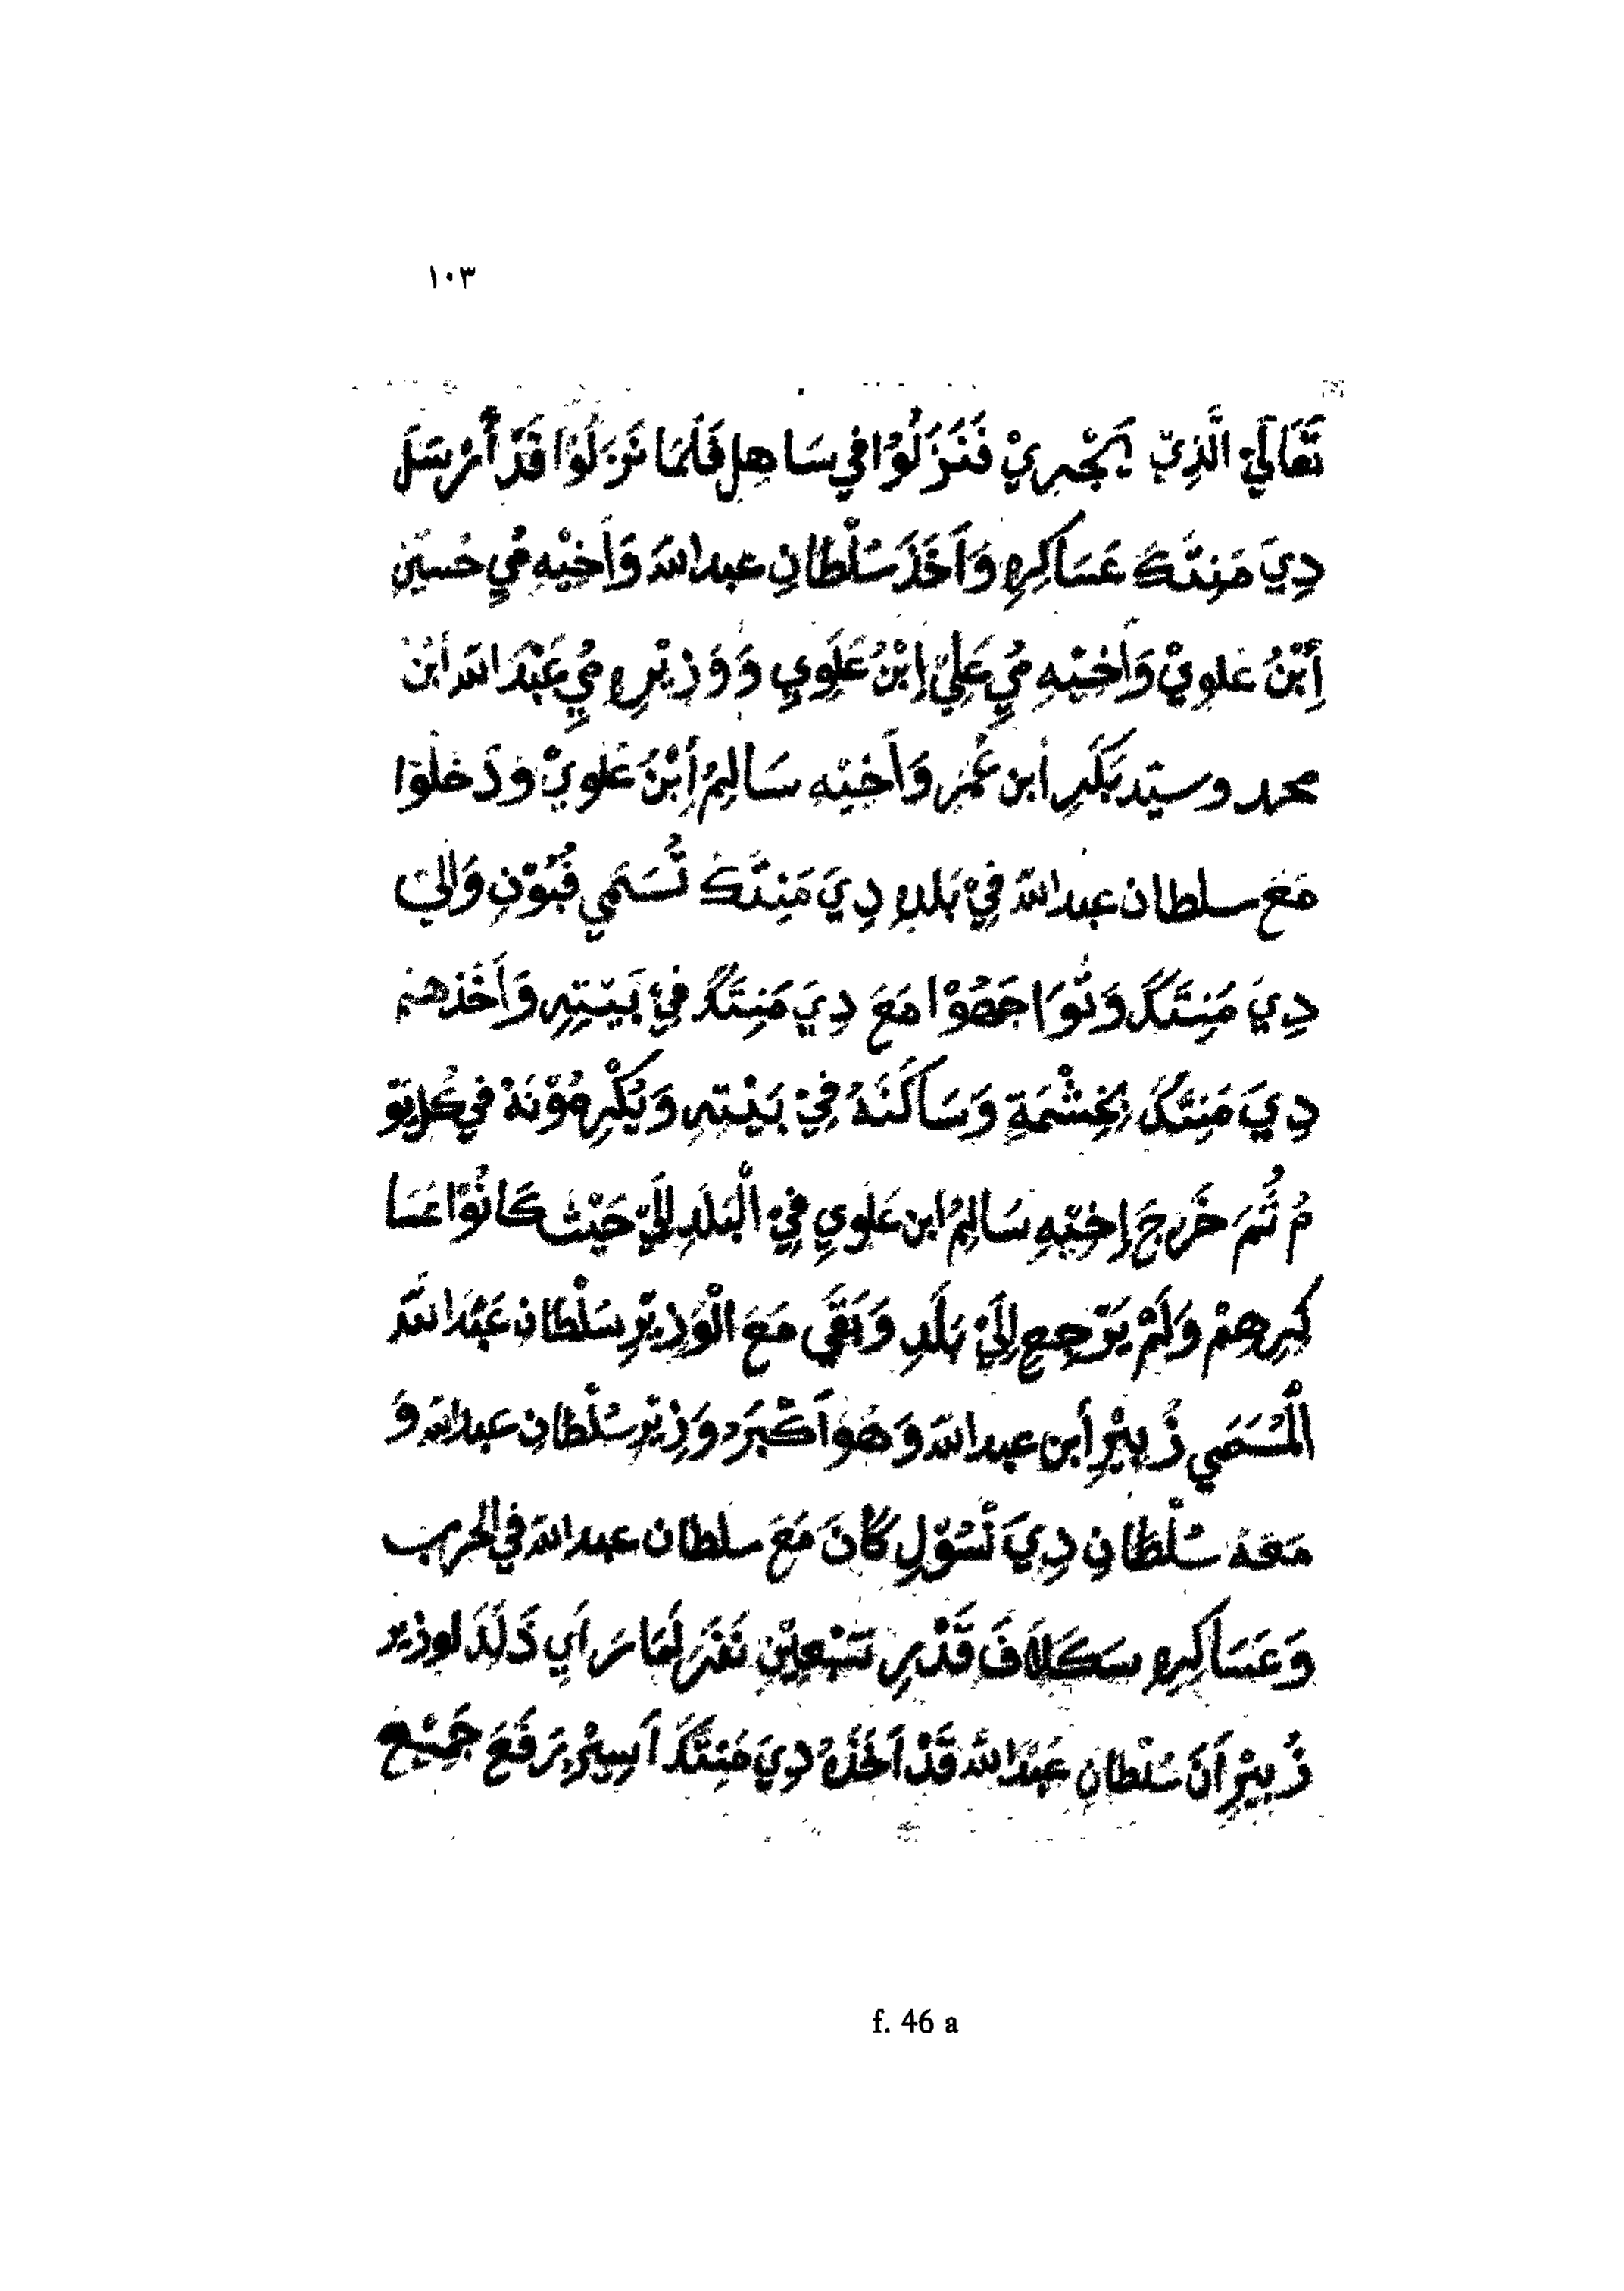 ١٠٣
تَعَالَيْ الَّذِيْ يَجْرِيْ فَنَزَلُوْا فِي سَاهِلِ فَلَمَا نَزَلُوْا قَدْ أَرْسَلَ
دِيَ مَنِتَّكَ عَسَاكِرِهِ وَآخَذَ سُلْطَانِ عبد اللهَ وَآخِيْهِ مُيِ حُسَيْنِ
أِبْنُ عَلوِيْ وَآخِيْهِ مُيِ عَلِيْ إِبْنُ عَلَوِي وَوَزِيْرِهِ مُيِ عَبْدَ اللهَ أبْن
محمد وسيّد بَكَرِ أبن عُمَرِ وَآخِيْهِ سَالِمُ أِبْنُ عَلَوِيْ وَدَخَلُوْا
مَعَ سلطان عبد اللهَ فِيْ بَلدِهِ دِيَ مَنِتَّكَ تُسَمَي فُبُوْنِ وَالِيَ
دِيَ مَنِتَّكَ وَتُوَاجَهُوْا مَعَ دِيَ مَنِتَّكَ فِيْ بَيْتِهِ وَآخَذهُمْ
دِيَ مَنِتَّكَ بِحِشْمَةٍ وَسَاكَنَهُ فِيْ بَيْتِهِ وَيُكْرِمُوْنَهُ فِي كُلِ يَوْ
مُ ثُمَ خَرَجَ إِخِيْهِ سَالِمُ ابن عَلَوِي فِيْ الْبَلَدِ اِلَيْ حَيْثُ كَانُوْا عَسَا
كِرِهِمْ وَلَمْ يَرْجِعِ اِلَيْ بَلَدِ وَبَقَي مَعَ الْوَزِيْرِ سُلْطَانِ عَبْدَ اللهَ
الْمُسَمَي زُبِيْرِ أبن عبد اللهَ وَهُوَ اَكْبَرَهِ وَزِيْرِ سُلْطَانِ عبد اللهَ وَ
مَعَهُ سُلْطَانِ دِيَ نْسُوْلِ كَانَ مَعَ سلطان عبد اللهَ فِي الحرب
وَعَسَاكِرِهِ سَكَلاَفَ قَدْرِ تِسْعِيْنِ نَفَرَ لَمَا رَاَي ذَلَكَ لوزير
زُبِيْرِ اَنَ سُلْطَانِ عَبْدَ اللهَ قَدْ اَخَذَهُ دِيَ مَنِتَّكَ اَسِيْرِ رَفَعَ جَمِيْعِ
f. 46 a